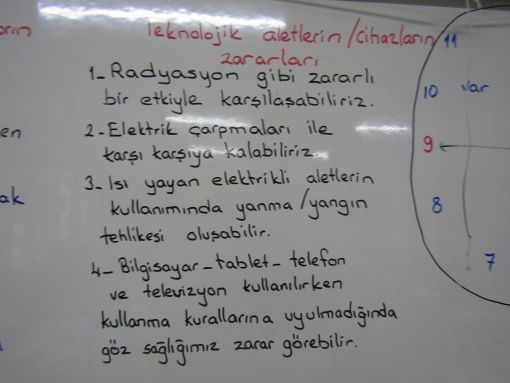 Teknolojik aletlerin/cihazların
zararları
1- Radyasyon gibi zararlı
bir etkiyle karşılaşabiliriz.
2- Elektrik çarpmaları ile
karşı karşıya kalabiliriz.
3- Isı yayan elektrikli aletlerin
kullanımında yanma/yangın
tehlikesi oluşabilir.
4- Bilgisayar-tablet-telefon
ve televizyon kullanılırken
kullanma kurallarına uyulmadığında
göz sağlığımız zarar görebilir.
en
ak
11
10 var
9
8
7